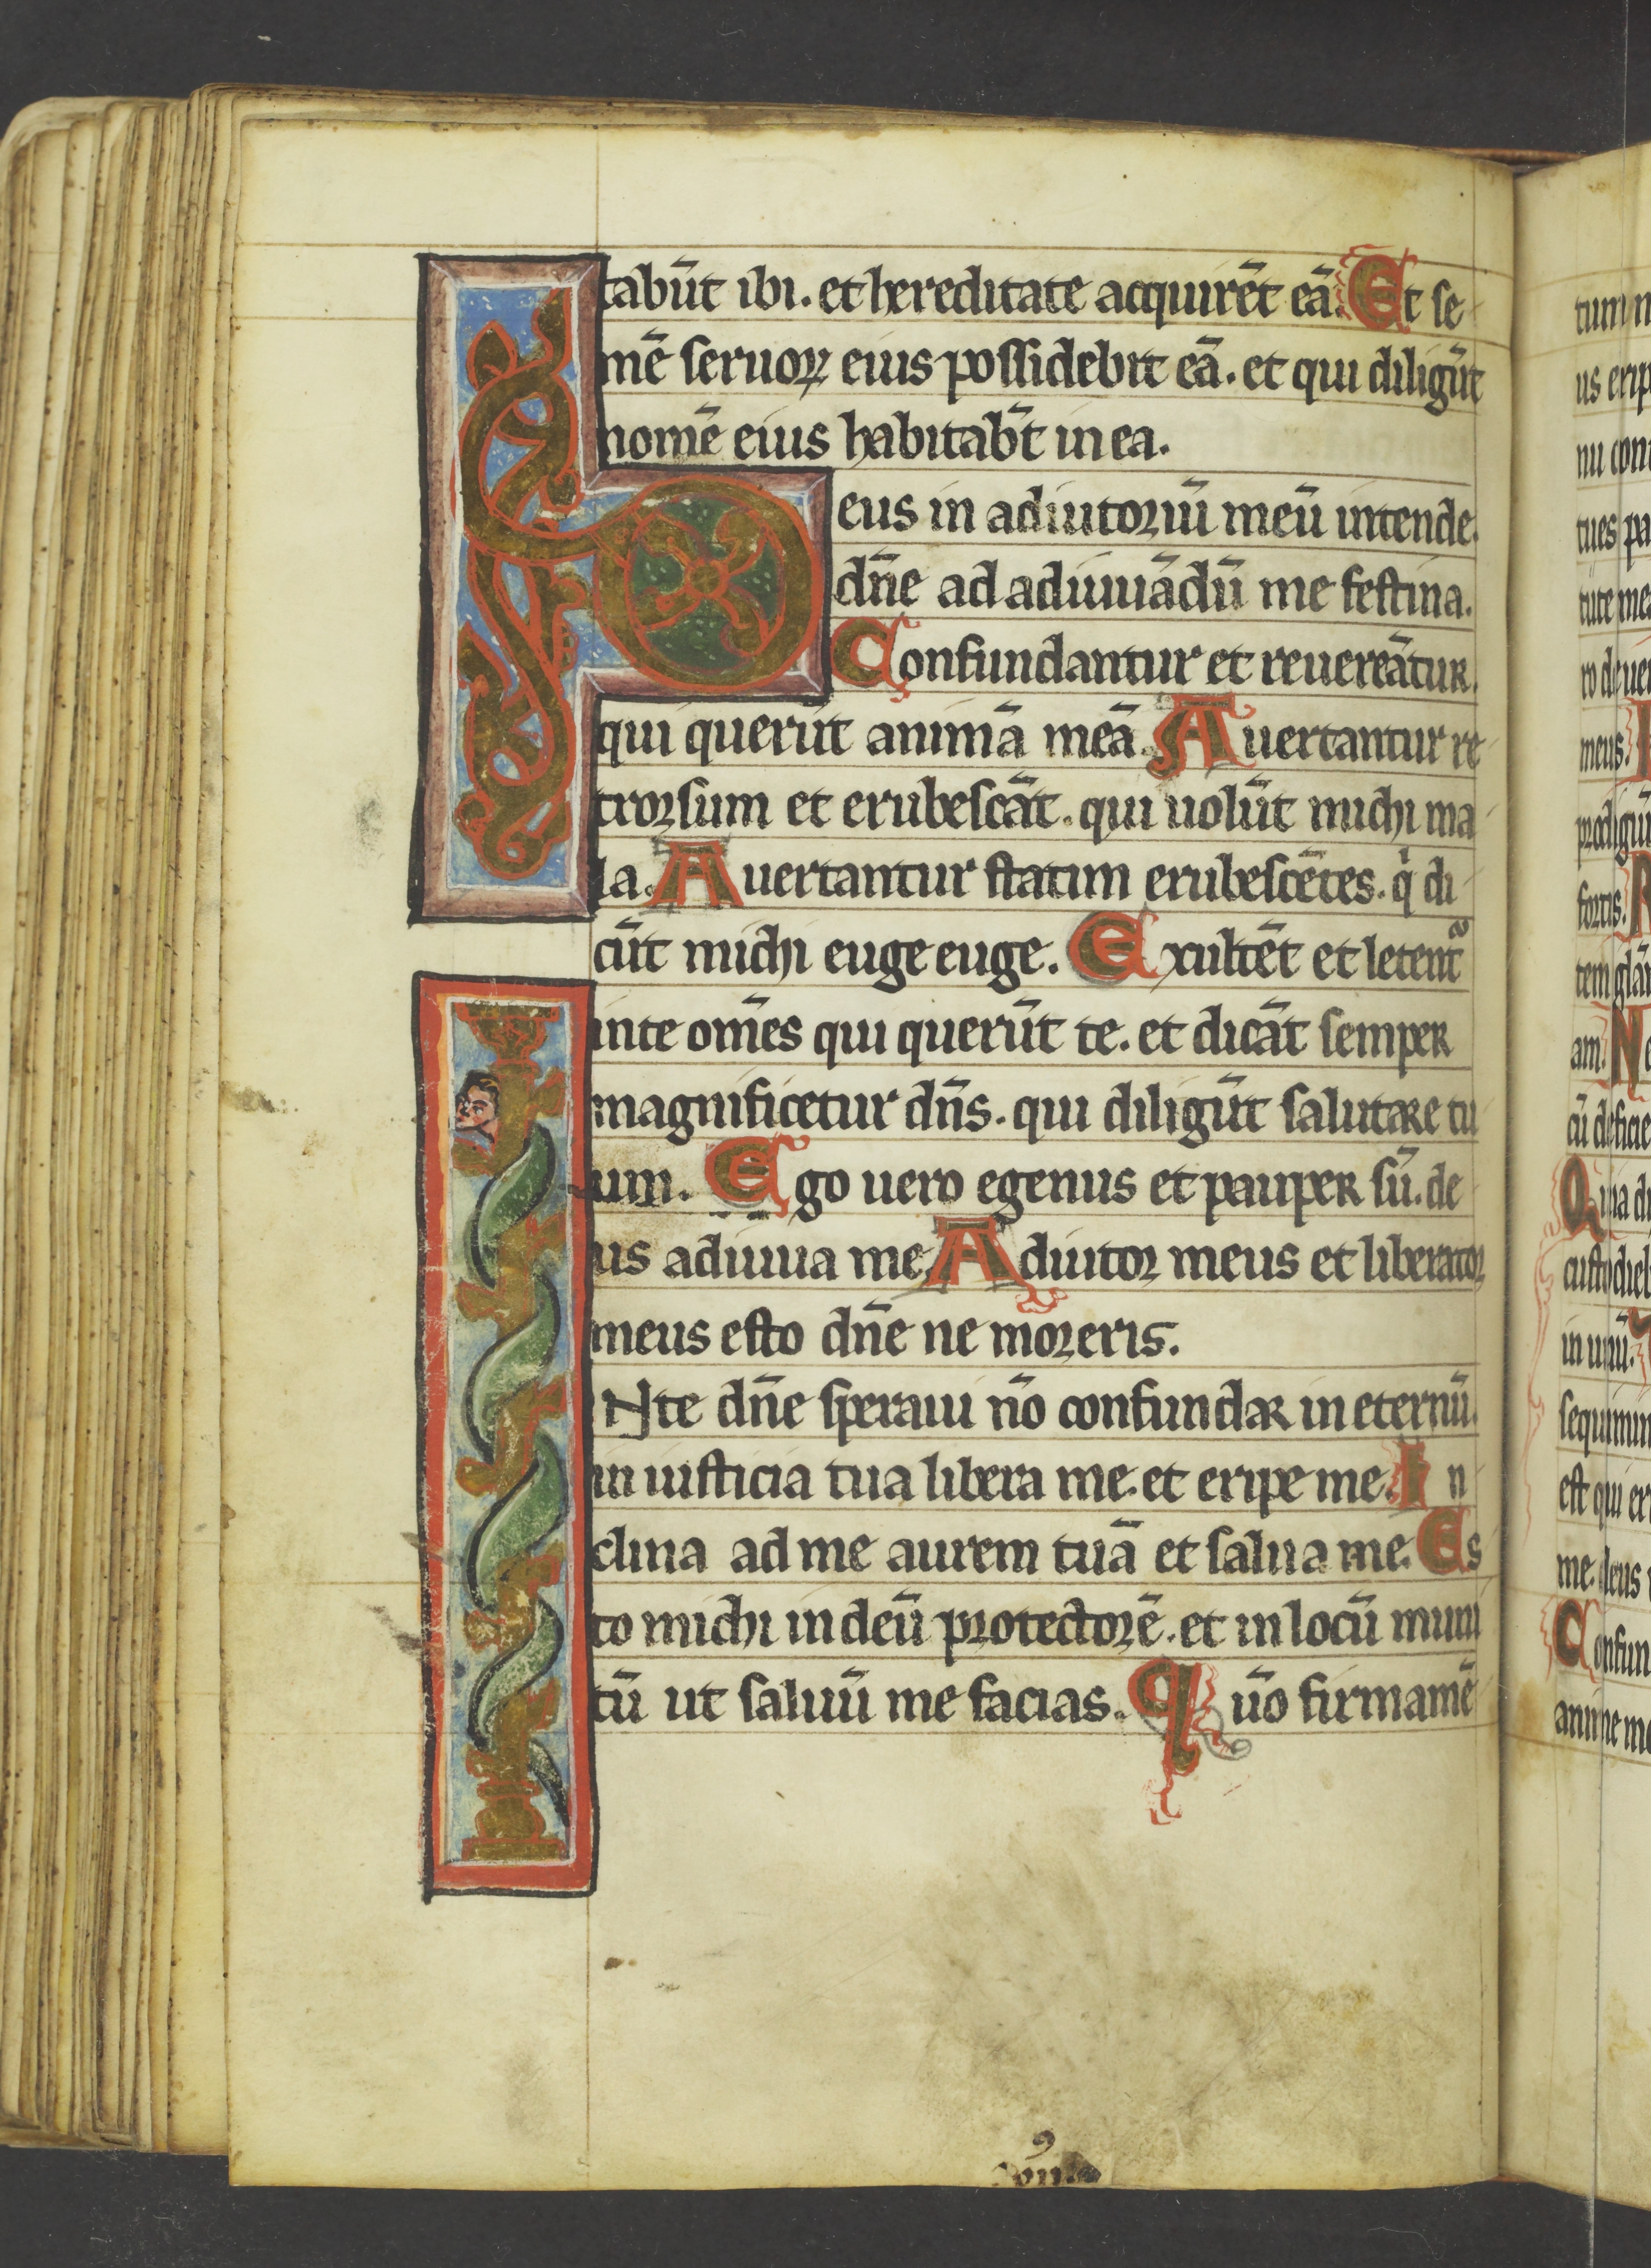 tabūt ibi. et hereditate acquirēt eā. Et se
mē seruoꝝ eius possidebit eā. et qui diligūt
nomē eius habitab̄t in ea.
eus in adiutoriū meū intende.
dn̄e ad adiuuādū me festina.
Confundantur et reuereātur.
qui querūt animā meā. Auertantur re
trorsum et erubescāt. qui uolūt michi ma
la. Auertantur statim erubescētes. qͥ di
cūt michi euge euge. Exultēt et letent᷑
in te om̄es qui querūt te. et dicāt semper
magnificetur dn̄s. qui diligūt salutare tu
um. Ego uero egenus et pauper sū. de
us adiuua me. Adiutor meus et liberator
meus esto dn̄e ne moreris.
INte dn̄e speraui nō confundar in eternū.
in iusticia tua libera me. et eripe me. In
clina ad me aurem tuā et salua me. Es
to michi in deū protectorē. et in locū muni
tū ut saluū me facias. Qm̄o firmamē
tum m
us erip
nu con
tues pa
tute me
meus.
fortis.
am. Ne
cū deficie
Quia di
custodieb
in unū.
sequimin
est qui er
me. deus
Confun
anime me